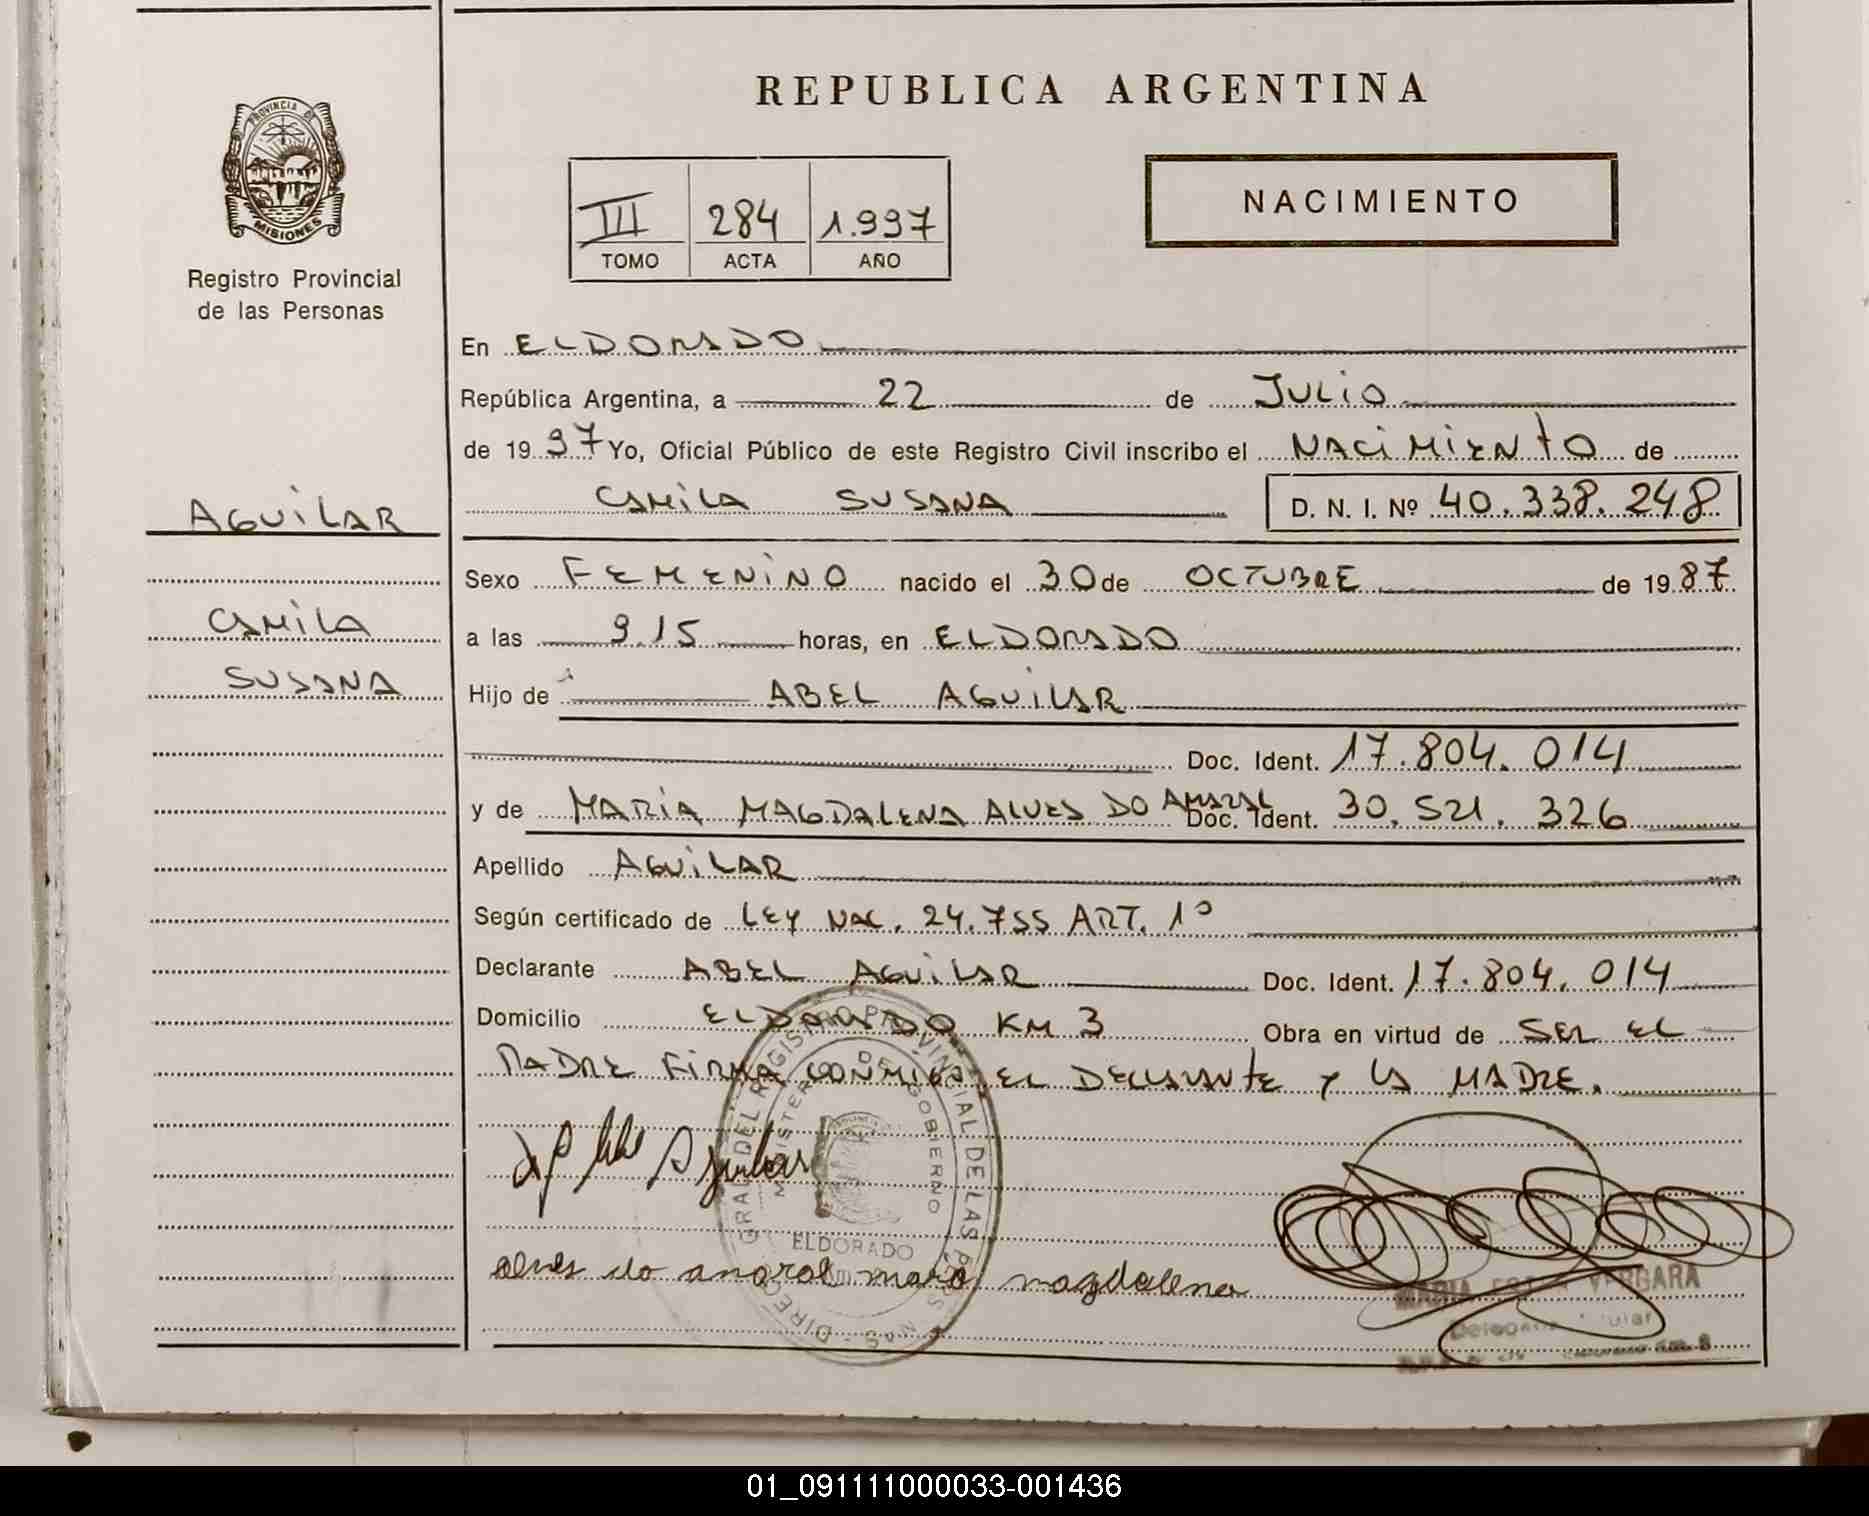 REPUBLICA ARGENTINA
PROVINCIA DE
MISIONES
Registro Provincial
de las Personas
III 284 1.997
TOMO ACTA AÑO
NACIMIENTO
AGUILAR
CAMILA
SUSANA
En ELDORADO
República Argentina, a 22 de JULIO
de 1997 Yo, Oficial Público de este Registro Civil inscribo el NACIMIENTO de
CAMILA SUSANA D. N. I. Nº 40.338.248
Sexo FEMENINO nacido el 30 de OCTUBRE de 1987
a las 9.15 horas, en ELDORADO
Hijo de ABEL AGUILAR
Doc. Ident. 17.804.014
y de MARIA MAGDALENA ALVES DO AMARAL Doc. Ident. 30.521.326
Apellido AGUILAR
Según certificado de LEY NAC. 24.755 ART. 1º
Declarante ABEL AGUILAR Doc. Ident. 17.804.014
Domicilio ELDORADO KM 3 Obra en virtud de SER EL
PADRE FIRMA CONMIGO EL DECLARANTE Y LA MADRE.
DIREC. GRAL. DEL REGISTRO PROVINCIAL DE LAS PERSONAS
MINISTERIO DE GOBIERNO
ELDORADO
alves do amaral mara magdalena
MARIA ESTER VERGARA
Delegada Titular
01_091111000033-001436